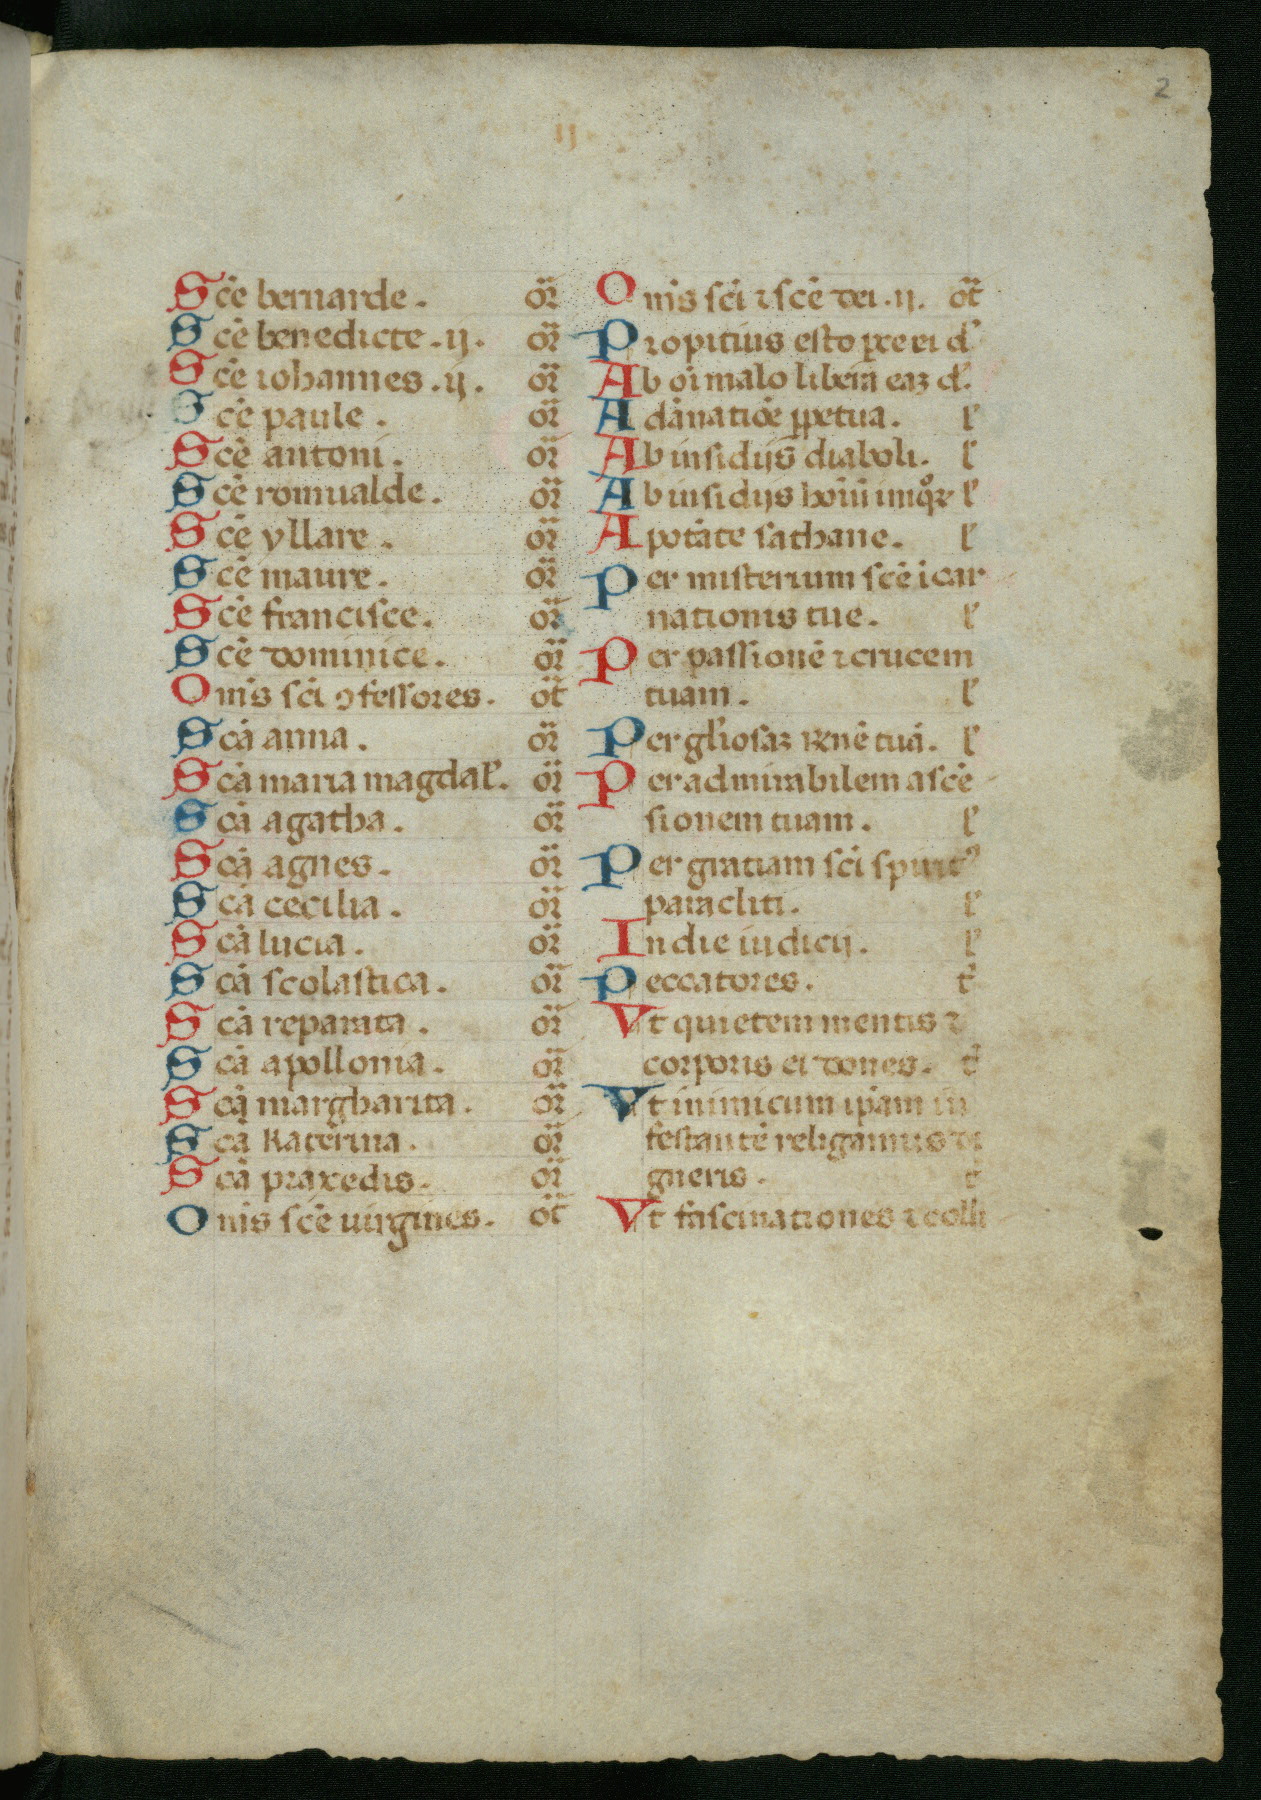 2
ii
Sc̄e bernarde . or̄
Sc̄e benedicte .ij. or̄
Sc̄e iohannes .ij. or̄
Sc̄e paule . or̄
Sc̄e antoni . or̄
Sc̄e romualde . or̄
Sc̄e yllare . or̄
Sc̄e maure . or̄
Sc̄e francisce . or̄
Sc̄e dominice . or̄
Om̄s sc̄i ꝯfessores . ot̄
Sc̄a anna . or̄
Sc̄a maria magdal̄ . or̄
Sc̄a agatha . or̄
Sc̄a agnes . or̄
Sc̄a cecilia . or̄
Sc̄a lucia . or̄
Sc̄a scolastica . or̄
Sc̄a reparata . or̄
Sc̄a apollonia . or̄
Sc̄a margharita . or̄
Sc̄a katerina . or̄
Sc̄a praxedis . or̄
Om̄s sc̄e uirgines . ot̄
Om̄s sc̄i ⁊ sc̄e dei .ij. ot̄
Propitius esto ei d̄
Ab oī malo libera eaꝫ d̄.
A dānatiōe ꝑpetua . l̄
Ab insidijs diaboli . l̄
Ab insidijs hoīū l̄
A potāte sathane . l̄
Per misterium sc̄e īcar
nationis tue . l̄
Per passionē ⁊ crucem
tuam . l̄
Per gl̄iosaꝫ tuā . l̄
Per admirabilem ascē
sionem tuam . l̄
Per gratiam sc̄i spirit᷒
paracliti . l̄
In die iudicij . l̄
Peccatores . t̄
Ut quietem mentis ⁊
corporis ei dones . t̄
Ut inimicum ip̄am in
festantē religamus di
gneris . t̄
Ut fascinationes ⁊ colli